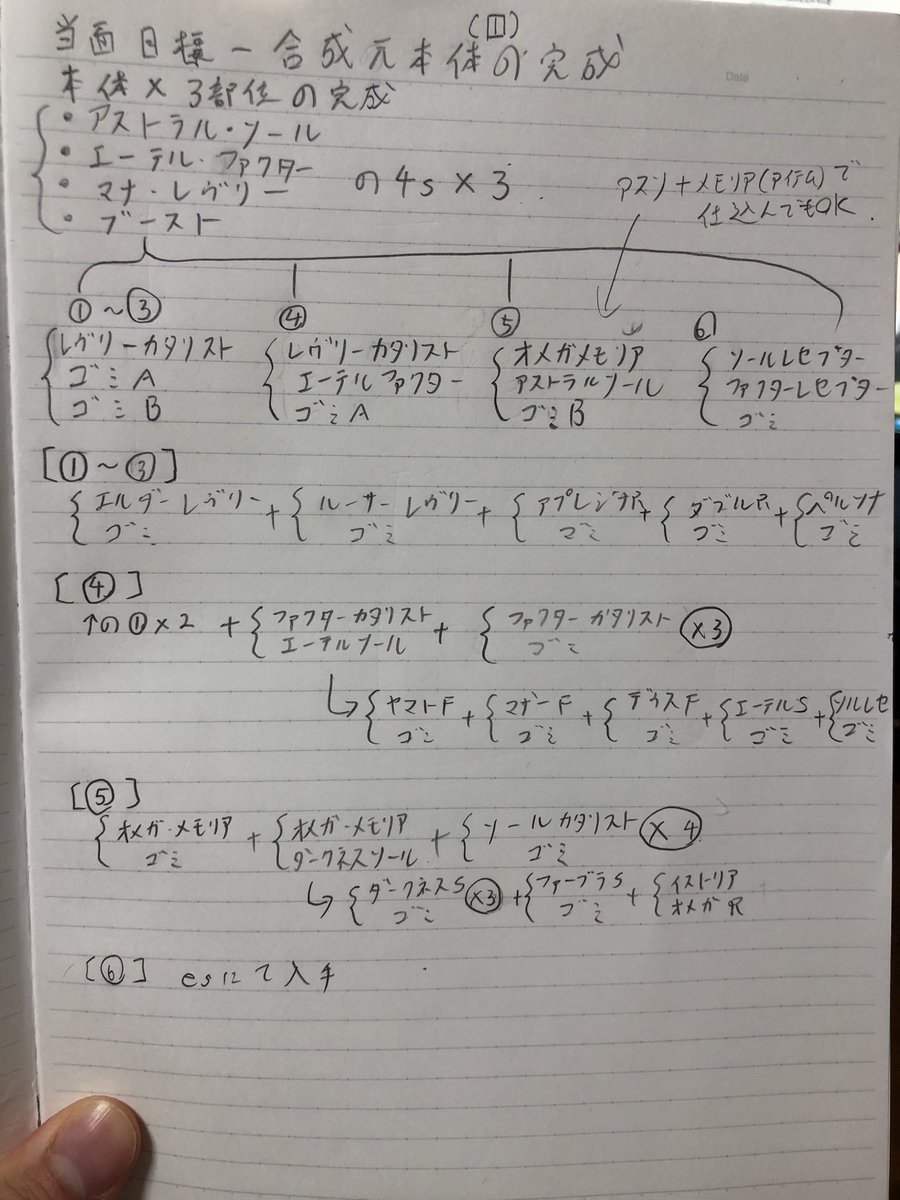 当面目標－合成元本体(皿)の完成
Date
本体×3部位の完成
・アストラル・ソール
・エーテル・ファクター
・マナ・レヴリー
・ブースト
の4s×3
アスソ+メモリア(アイテム)で
仕込んでもOK.
①~③ ④ ⑤ ⑥
レヴリーカタリスト レヴリーカタリスト オメガメモリア ソールレセプター
ゴミA エーテルファクター アストラルソール ファクターレセプター
ゴミB ゴミA ゴミB ゴミ
[①~③]
エルダーレヴリー + ルーサーレヴリー + アプレジナ + +ペルソナ
ゴミ ゴミ ゴミ ゴミ ゴミ
[④]
↑の①×2 + ファクターカタリスト + ファクターカタリスト ×3
エーテルソール ゴミ
↳ ヤストF + マザーF + ディスF + エーテルS + ソルレセ
ゴミ ゴミ ゴミ ゴミ ゴミ
[⑤]
オメガ・メモリア + オメガ・メモリア + ソールカタリスト ×4
ゴミ ダークネスソール ゴミ
↳ ダークネスS ×3 + ファーブラS + イストリア
ゴミ ゴミ オメガR
[⑥] esにて入手